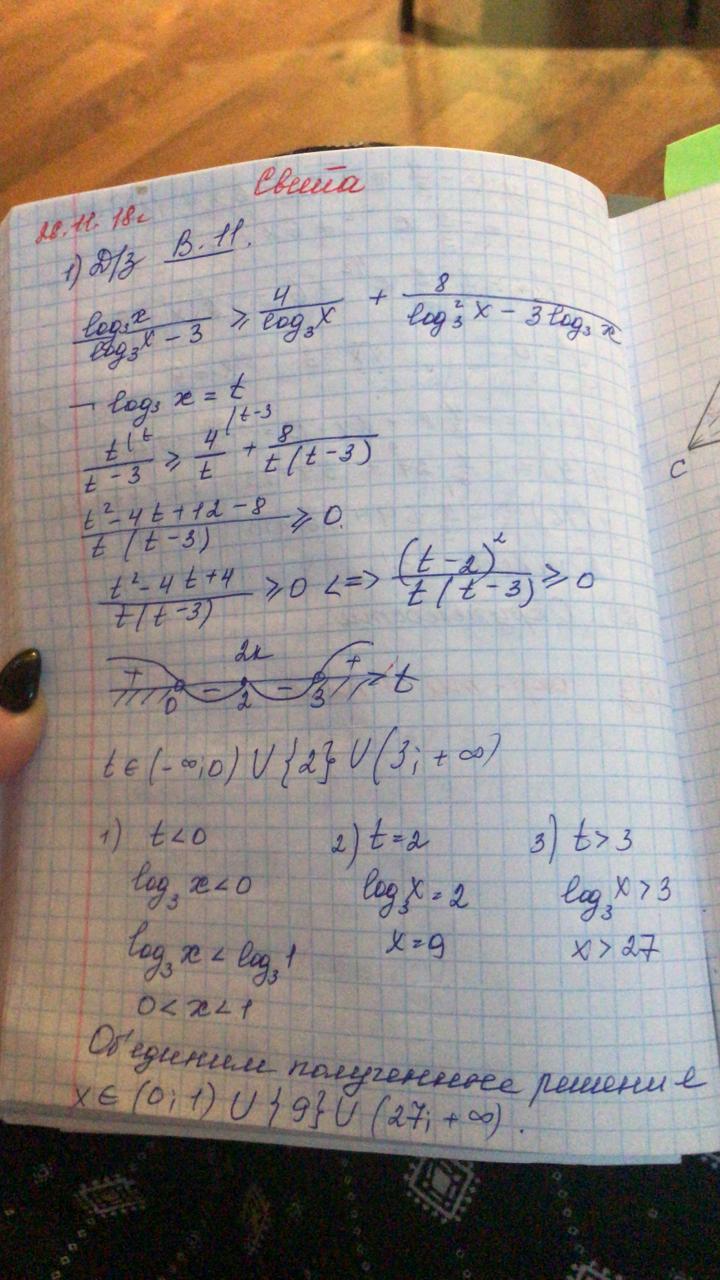 Света
28.11.18г
1) Д/З В.11.
log₃x / (log₃x − 3) ⩾ 4 / log₃x + 8 / (log₃²x − 3log₃x)
− log₃ x = t
t⁽ᵗ / (t − 3) ⩾ 4⁽ᵗ⁻³ / t + 8 / (t(t−3))
(t² − 4t + 12 − 8) / (t(t−3)) ⩾ 0.
(t² − 4t + 4) / (t(t−3)) ⩾ 0 <=> (t−2)² / (t(t−3)) ⩾ 0
2к
+ − − + t
0 2 3
t ∈ (−∞;0) U {2} U (3; +∞)
1) t<0 2) t=2 3) t>3
log₃ x<0 log₃x=2 log₃x>3
log₃x < log₃1 x=9 x>27
0<x<1
Об'единим полученное решение
x ∈ (0;1) U {9} U (27; +∞).
C